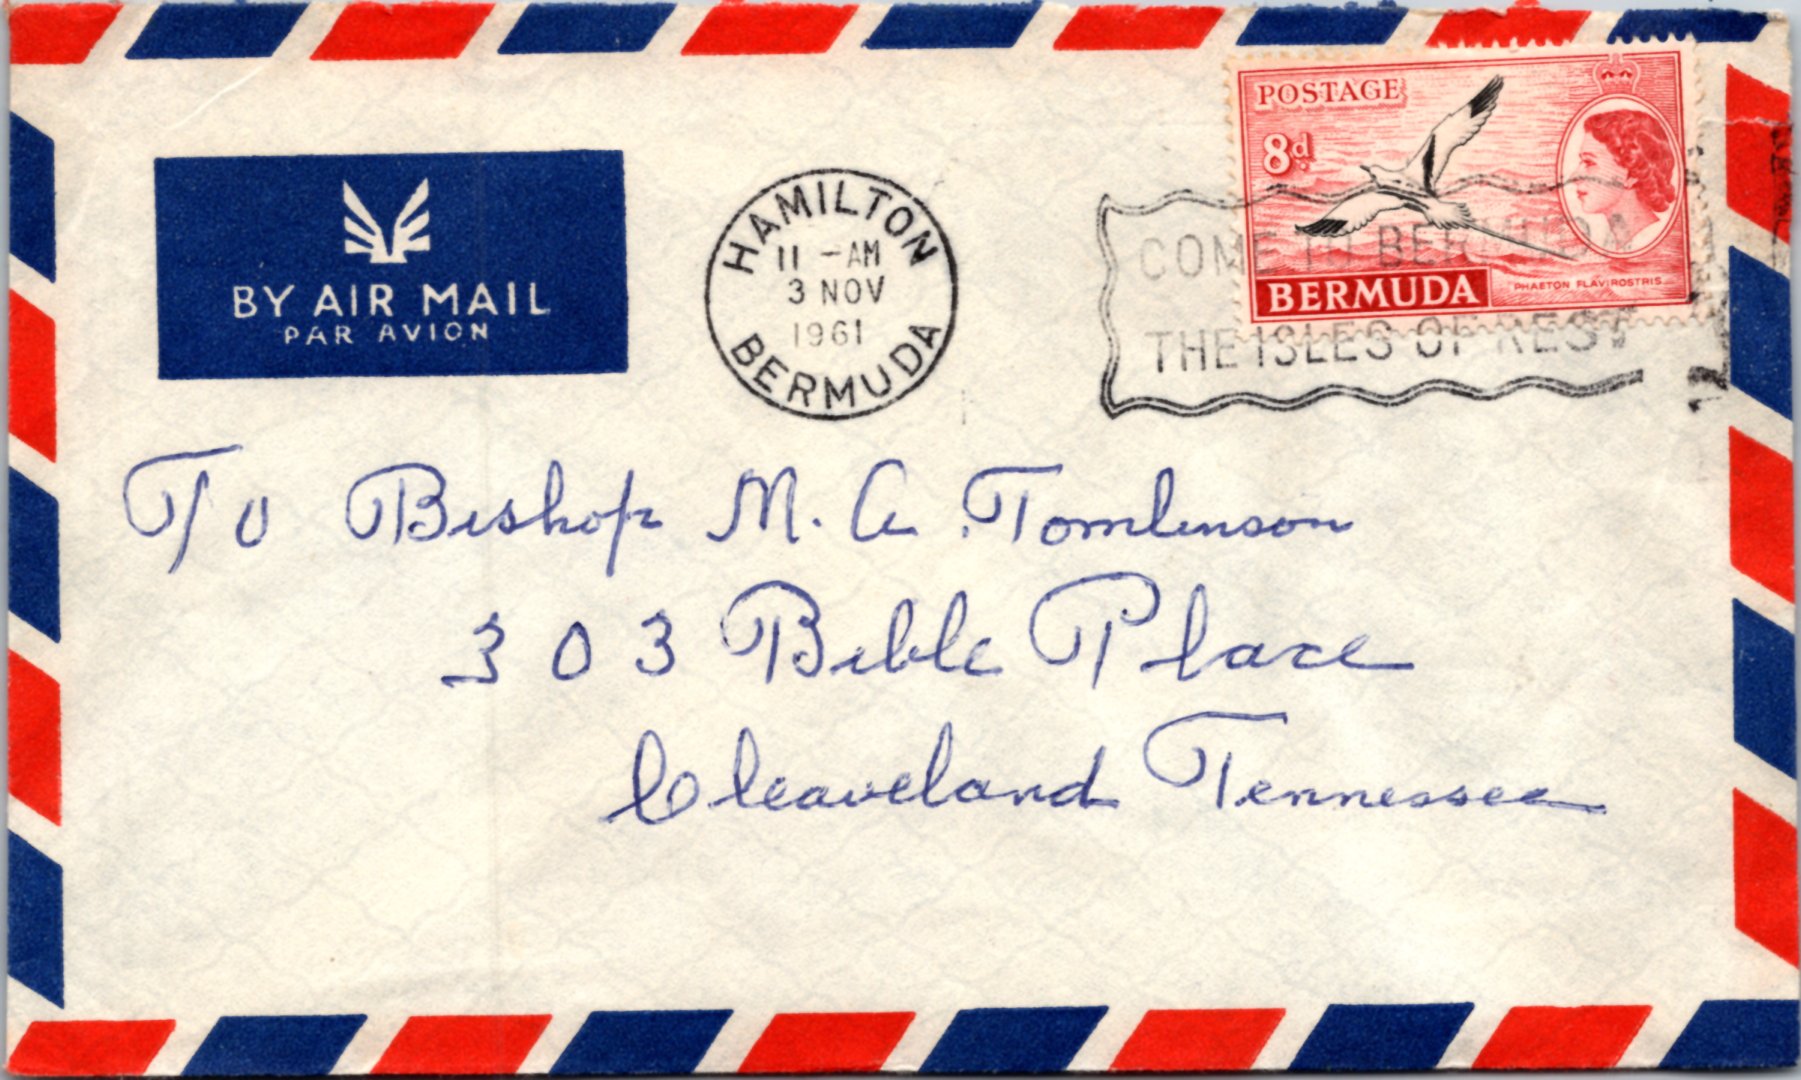 BY AIR MAIL
PAR AVION
HAMILTON
11 -AM
3 NOV
1961
BERMUDA
POSTAGE
8d
BERMUDA
PHAETON FLAVIROSTRIS
COME TO BERMUDA
THE ISLES OF REST
T/O Bishop M. A. Tomlinson
303 Bible Place
Cleaveland Tennessee